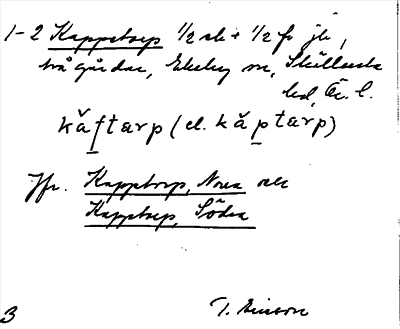 1-2 Kappstorp 1/2 sk + 1/2 fr jk,
två gårdar, Ekeby sn, Skyllersta
hd, Ör. l.
kåftarp (el. kåptarp)
Jfr. Kapptorp, Norra och
Kapptorp, Södra
3 T.